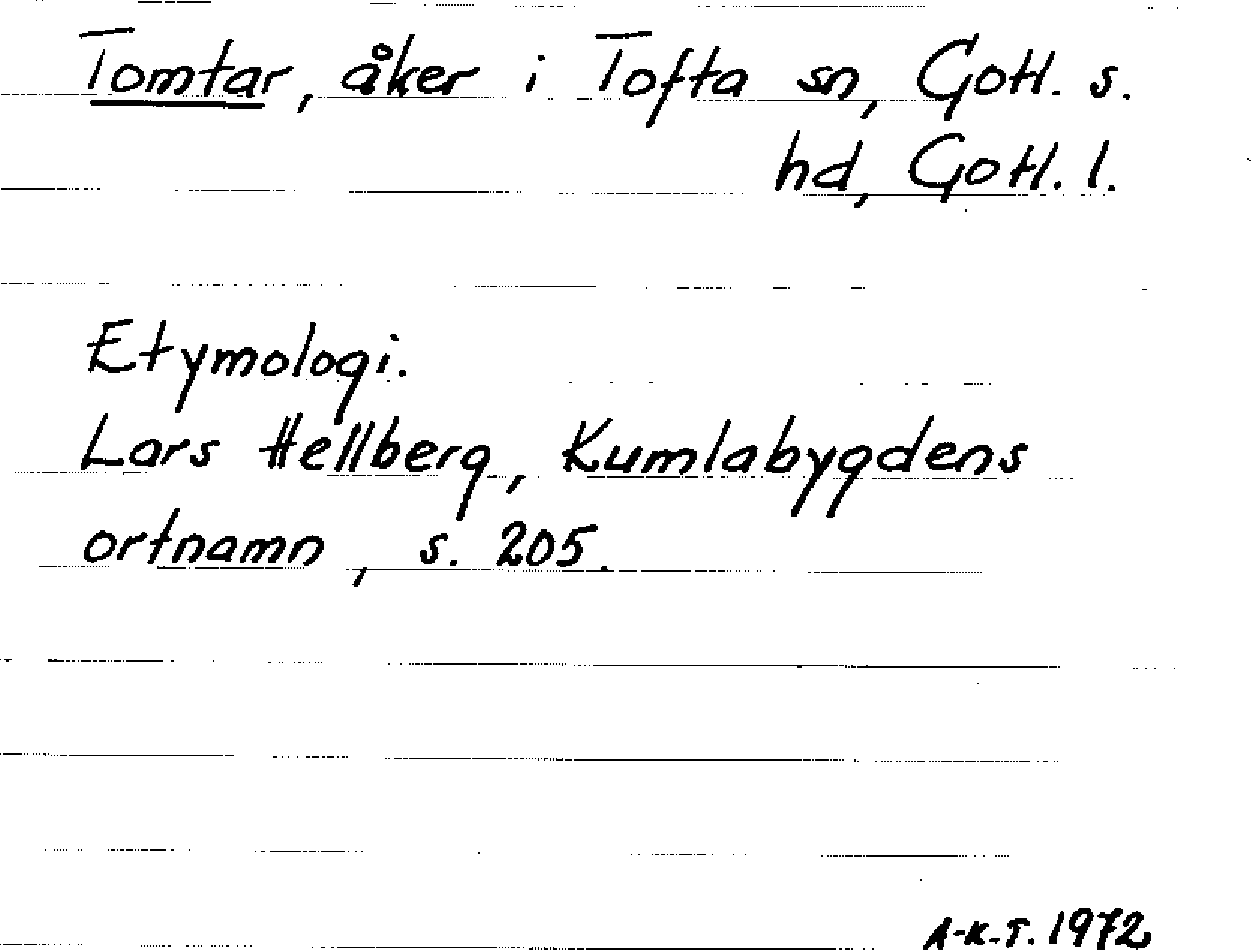 Tomtar, åker i Tofta sn, Gotl. s.
hd, Gotl. l.
Etymologi.
Lars Hellberg, Kumlabygdens
ortnamn, s. 205.
A-K.T. 1972